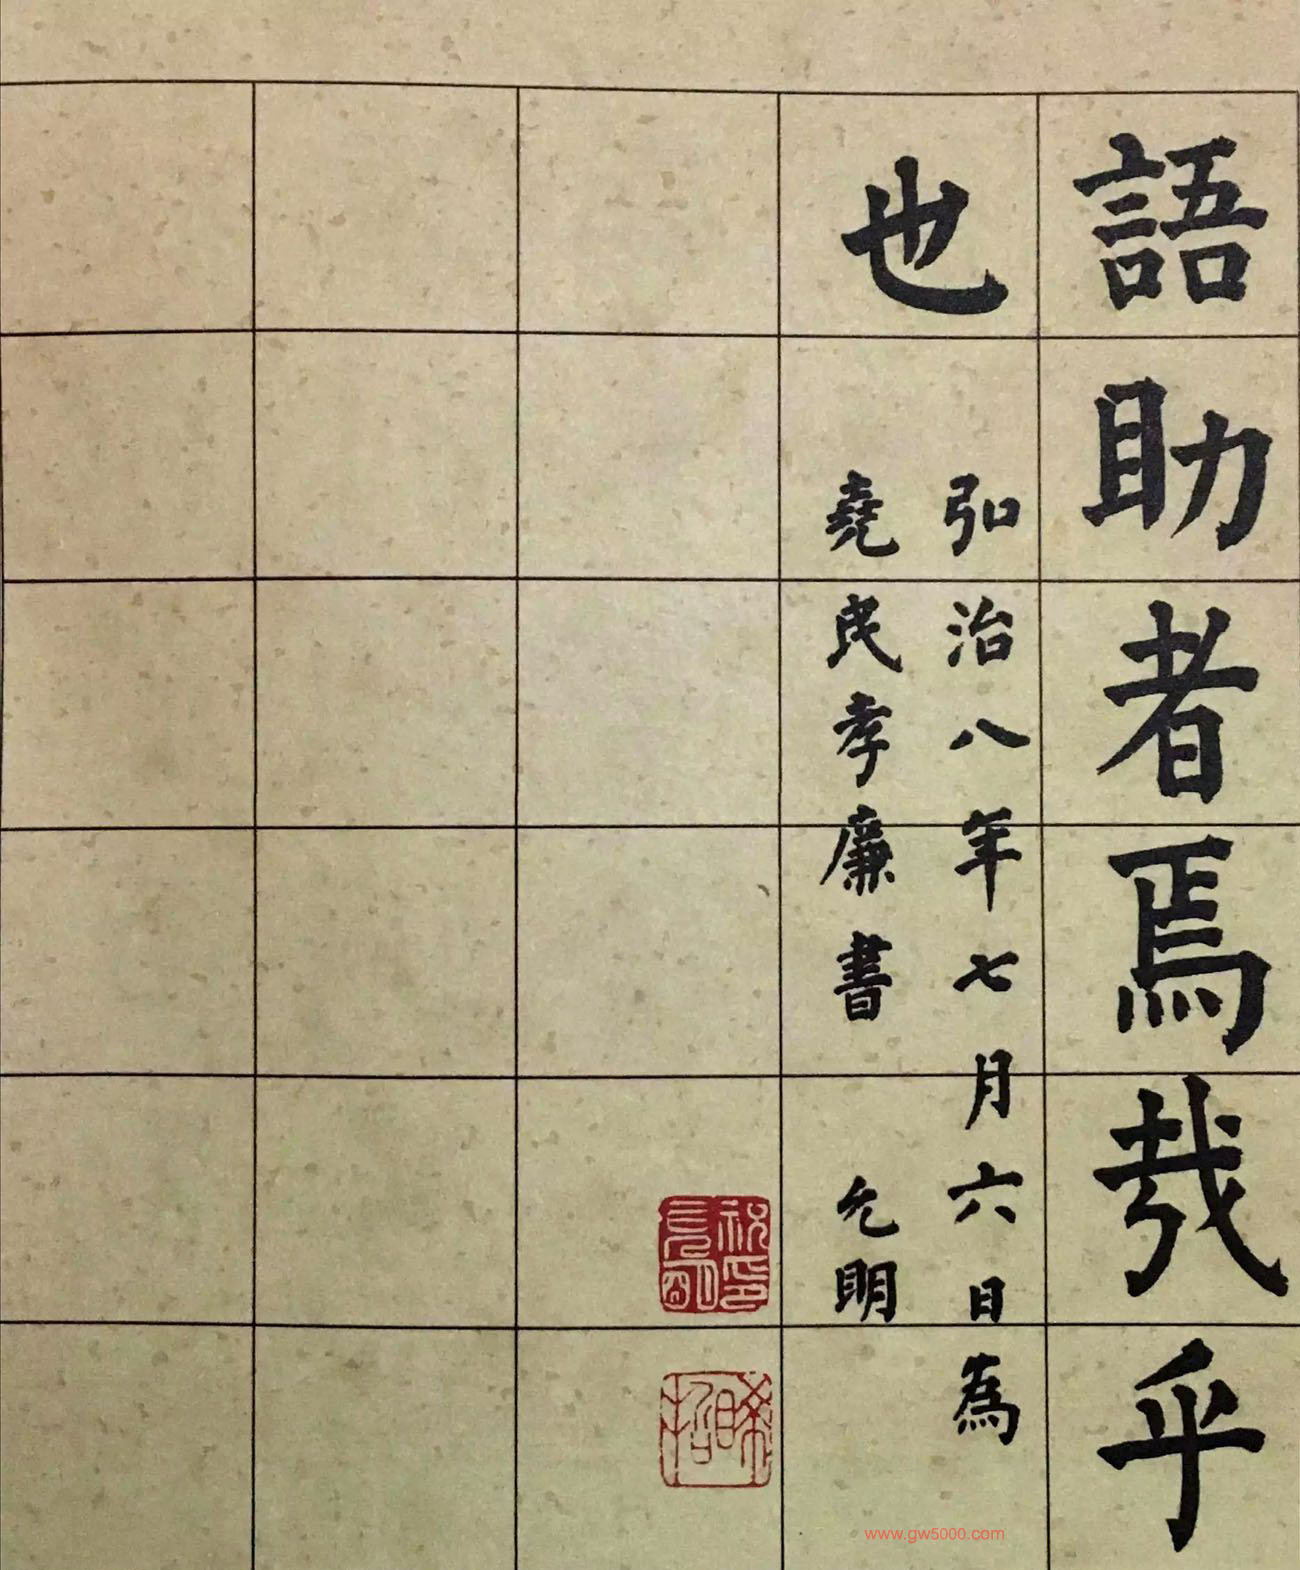 語助者焉哉乎
也
弘治八年七月六日為
堯民孝廉書 允明
祝允明印
晞哲
www.gw5000.com